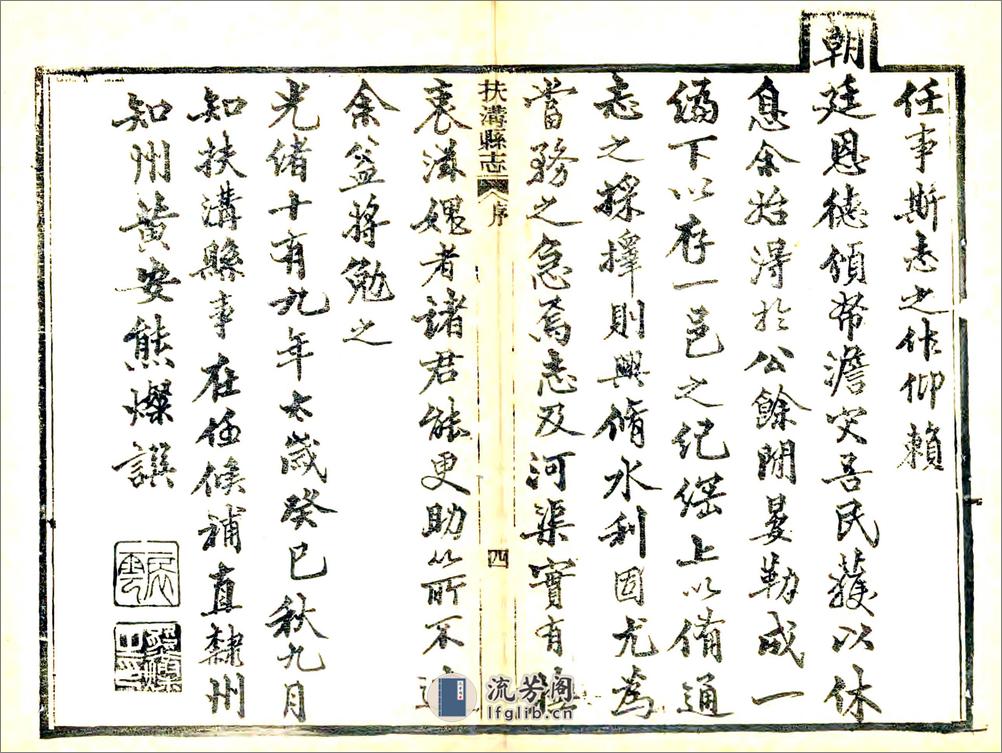 任事斯志之作仰賴
朝廷恩德頒帑澹災吾民獲以休
息余始得於公餘閒晏勒成一
編下以存一邑之紀綱上以備通
志之採擇則興脩水利固尤為
當務之急焉志及河渠實有
衷滋媿者諸君能更助以所不
余益將勉之
光緒十有九年太歲癸巳秋九月
知扶溝縣事在任候補直隸州
知州黃安熊燦譔
扶溝縣志 序
四
流芳阁
lfglib.cn